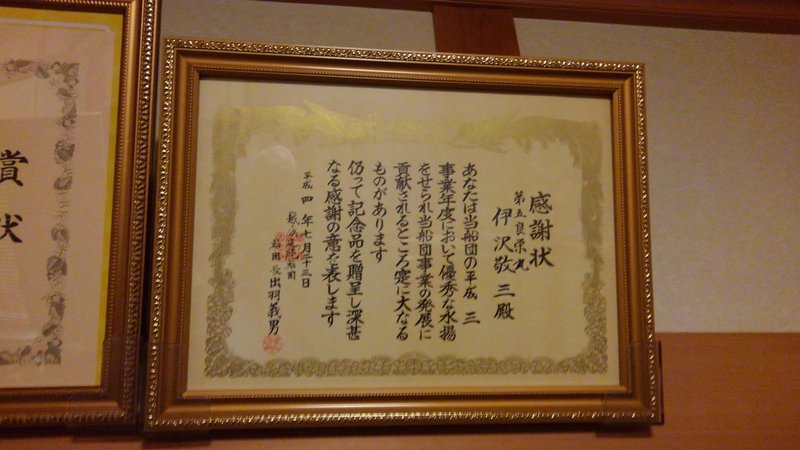 感謝状
第五良栄丸
伊沢敬三殿
あなたは当船団の平成三
事業年度において優秀な水揚
をせられ当船団事業の発展に
貢献されるところ寔に大なる
ものがあります
仍って記念品を贈呈し深甚
なる感謝の意を表します
平成四年七月二十三日
船団長出羽義男
賞状